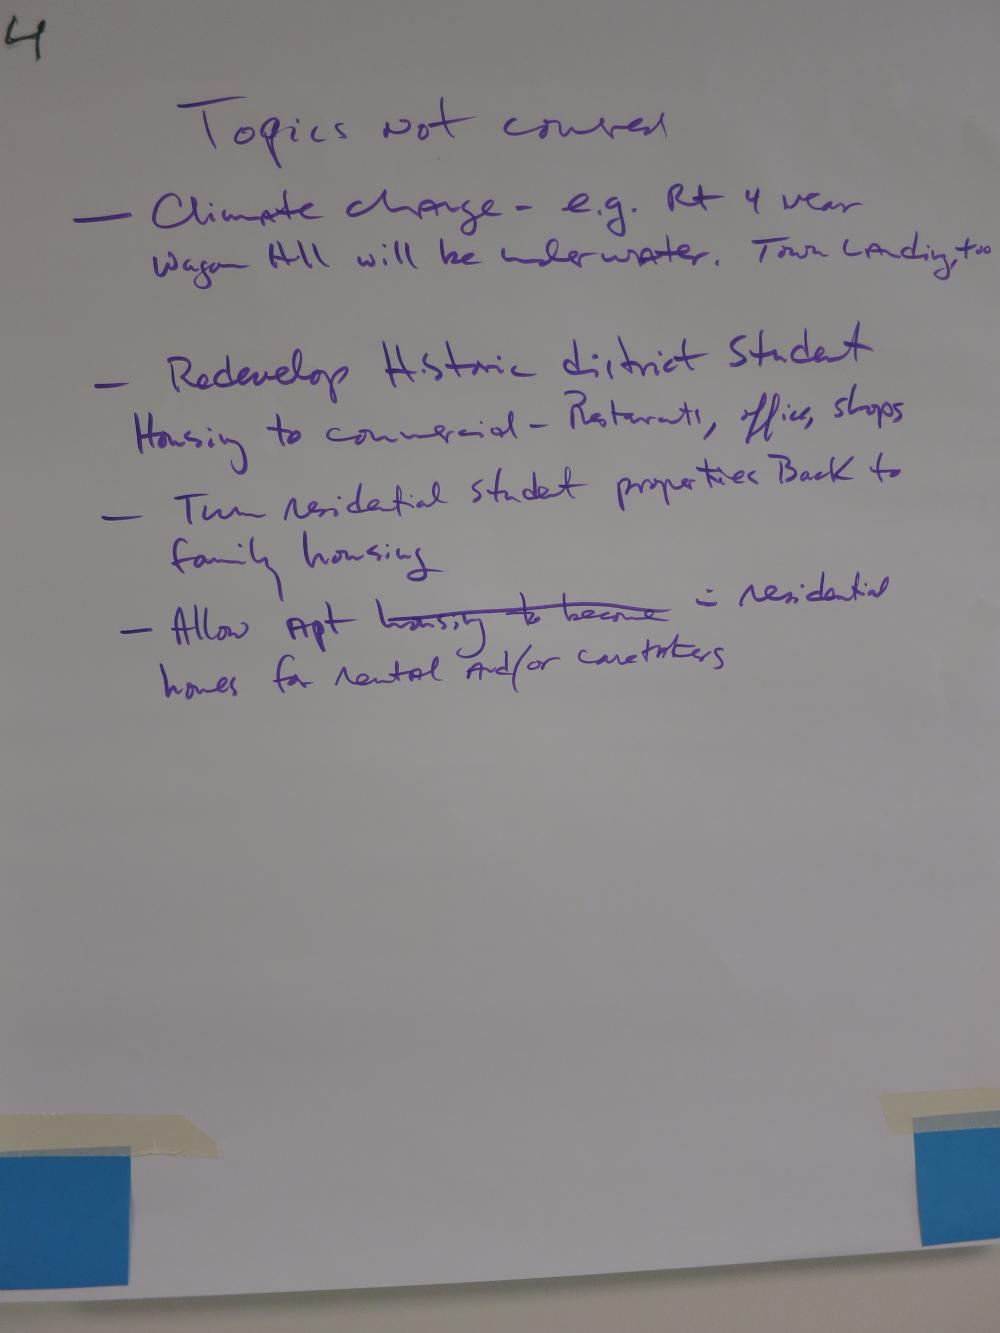 4
Topics not covered
— Climate change - e.g. Rt 4 near
Wagon Hill will be underwater. Town Landing, too
— Redevelop Historic district Student
Housing to commercial - Restaurants, office, shops
— Turn residential student properties Back to
family housing
— Allow Apt housing to become in residential
homes for rental and/or caretakers